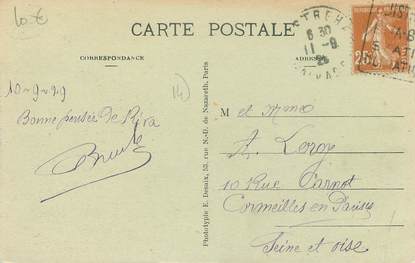 10 €
CARTE POSTALE
CORRESPONDANCE
ADRESSE
6 30
11-9
25
10-9-29
Bonne pensée de Riva
Phototypie E. Desaix, 53, rue N.-D. de Nazareth, Paris
M et Mme
A. Leroy
10 Rue Carnot
Cormeilles en Parisis
Seine et oise